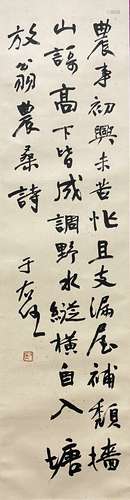 農事初興未苦忙且支漏屋補頹墻
山謌高下皆成調野水縱橫自入塘
放翁農桑詩
于右任